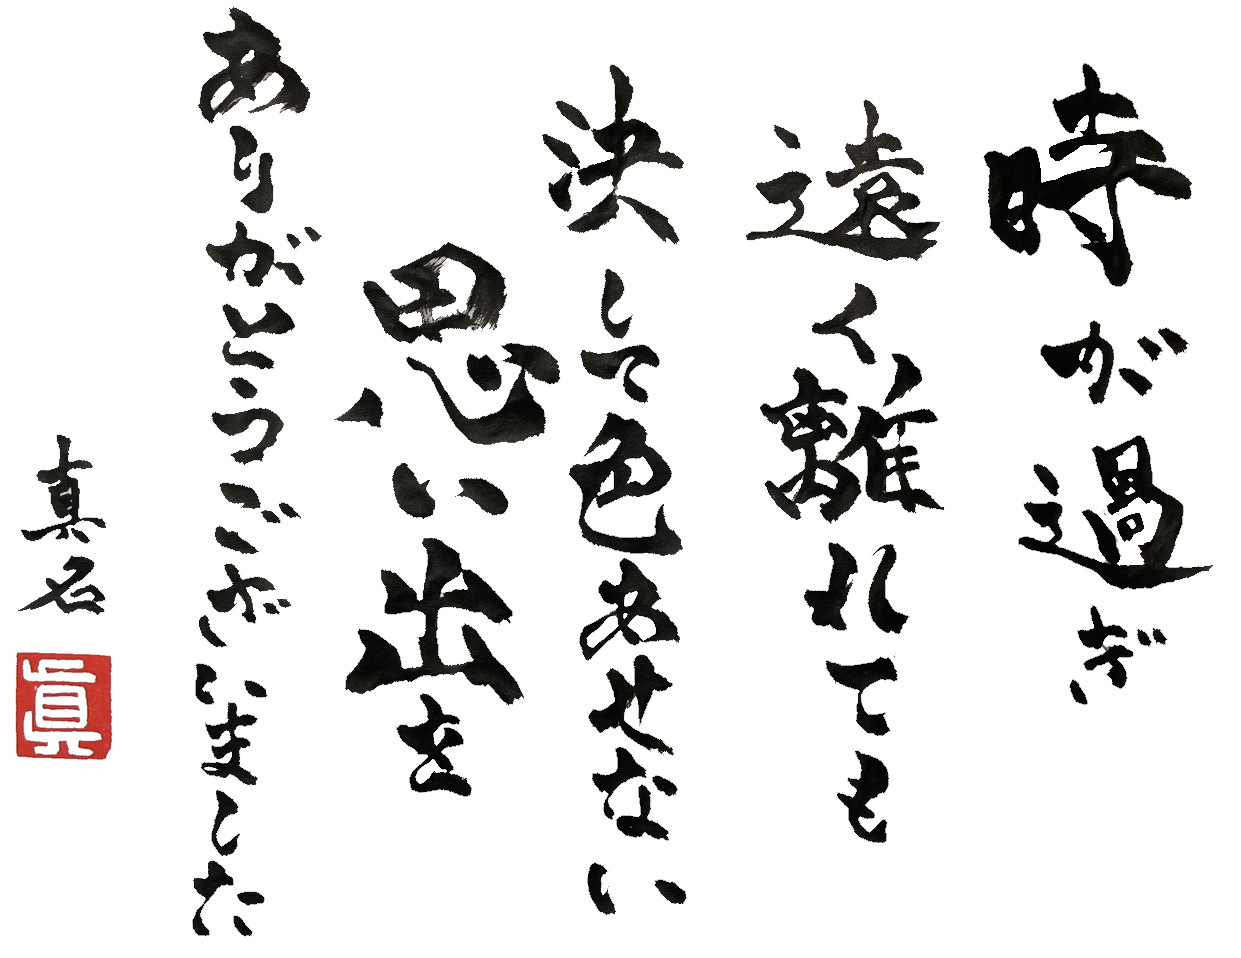 時が過ぎ
遠く離れても
決して色あせない
思い出を
ありがとうございました
真名
眞